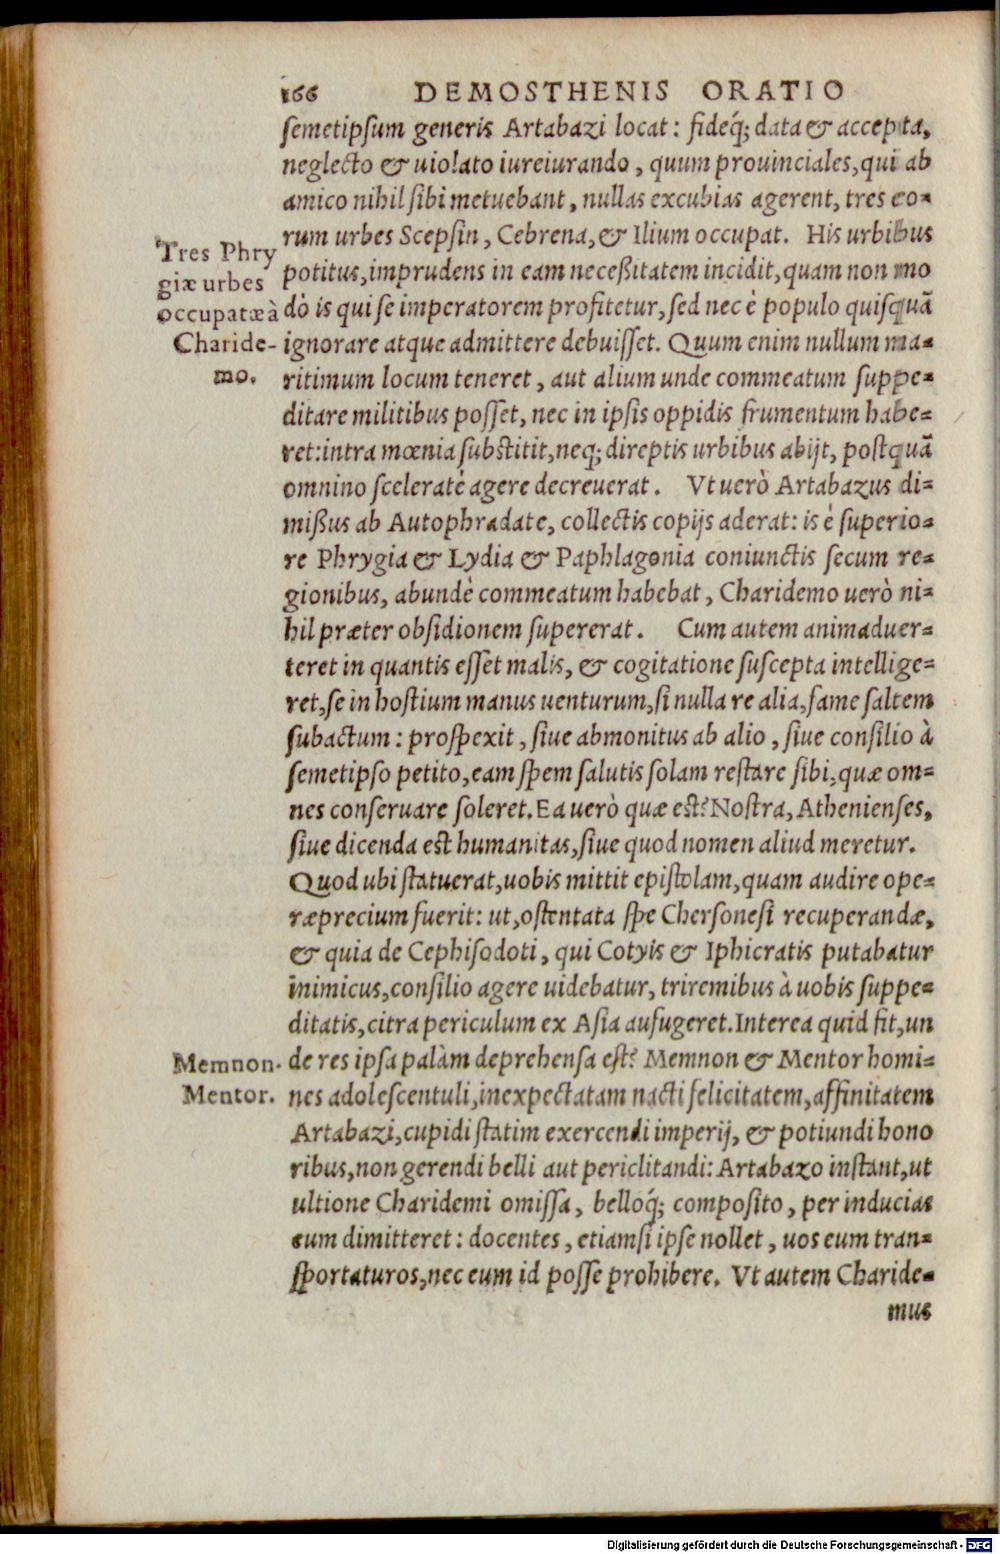 166 DEMOSTHENIS ORATIO
semetipsum generis Artabazi locat: fideq́; data & accepta,
neglecto & uiolato iureiurando, quum prouinciales, qui ab
amico nihil sibi metuebant, nullas excubias agerent, tres eo-
rum urbes Scepsin, Cebrena, & Ilium occupat. His urbibus
Tres Phry
giæ urbes
occupatæ à
Charide-
mo.
potitus, imprudens in eam neceßitatem incidit, quam non mo
dò is qui se imperatorem profitetur, sed nec è populo quisquā
ignorare atque admittere debuisset. Quum enim nullum ma-
ritimum locum teneret, aut alium unde commeatum suppe-
ditare militibus posset, nec in ipsis oppidis frumentum habe-
ret: intra mœnia substitit, neq; direptis urbibus abijt, postquā
omnino sceleratè agere decreuerat. Vt uerò Artabazus di-
mißus ab Autophradate, collectis copijs aderat: is è superio-
re Phrygia & Lydia & Paphlagonia coniunctis secum re-
gionibus, abundè commeatum habebat, Charidemo uerò ni-
hil præter obsidionem supererat. Cum autem animaduer-
teret in quantis esset malis, & cogitatione suscepta intellige-
ret, se in hostium manus uenturum, si nulla re alia, fame saltem
subactum: prospexit, siue abmonitus ab alio, siue consilio à
semetipso petito, eam spem salutis solam restare sibi, quæ om-
nes conseruare soleret. Ea uerò quæ est? Nostra, Athenienses,
siue dicenda est humanitas, siue quod nomen aliud meretur.
Quod ubi statuerat, uobis mittit epistolam, quam audire ope-
ræprecium fuerit: ut, ostentata spe Chersonesi recuperandæ,
& quia de Cephisodoti, qui Cotyis & Iphicratis putabatur
inimicus, consilio agere uidebatur, triremibus à uobis suppe-
ditatis, citra periculum ex Asia aufugeret. Interea quid fit, un
Memnon.
Mentor.
de res ipsa palàm deprehensa est? Memnon & Mentor homi-
nes adolescentuli, inexpectatam nacti felicitatem, affinitatem
Artabazi, cupidi statim exercendi imperij, & potiundi hono
ribus, non gerendi belli aut periclitandi: Artabazo instant, ut
ultione Charidemi omissa, belloq́; composito, per inducias
eum dimitteret: docentes, etiamsi ipse nollet, uos eum tran-
sportaturos, nec eum id posse prohibere. Vt autem Charide-
mus
Digitalisierung gefördert durch die Deutsche Forschungsgemeinschaft - DFG